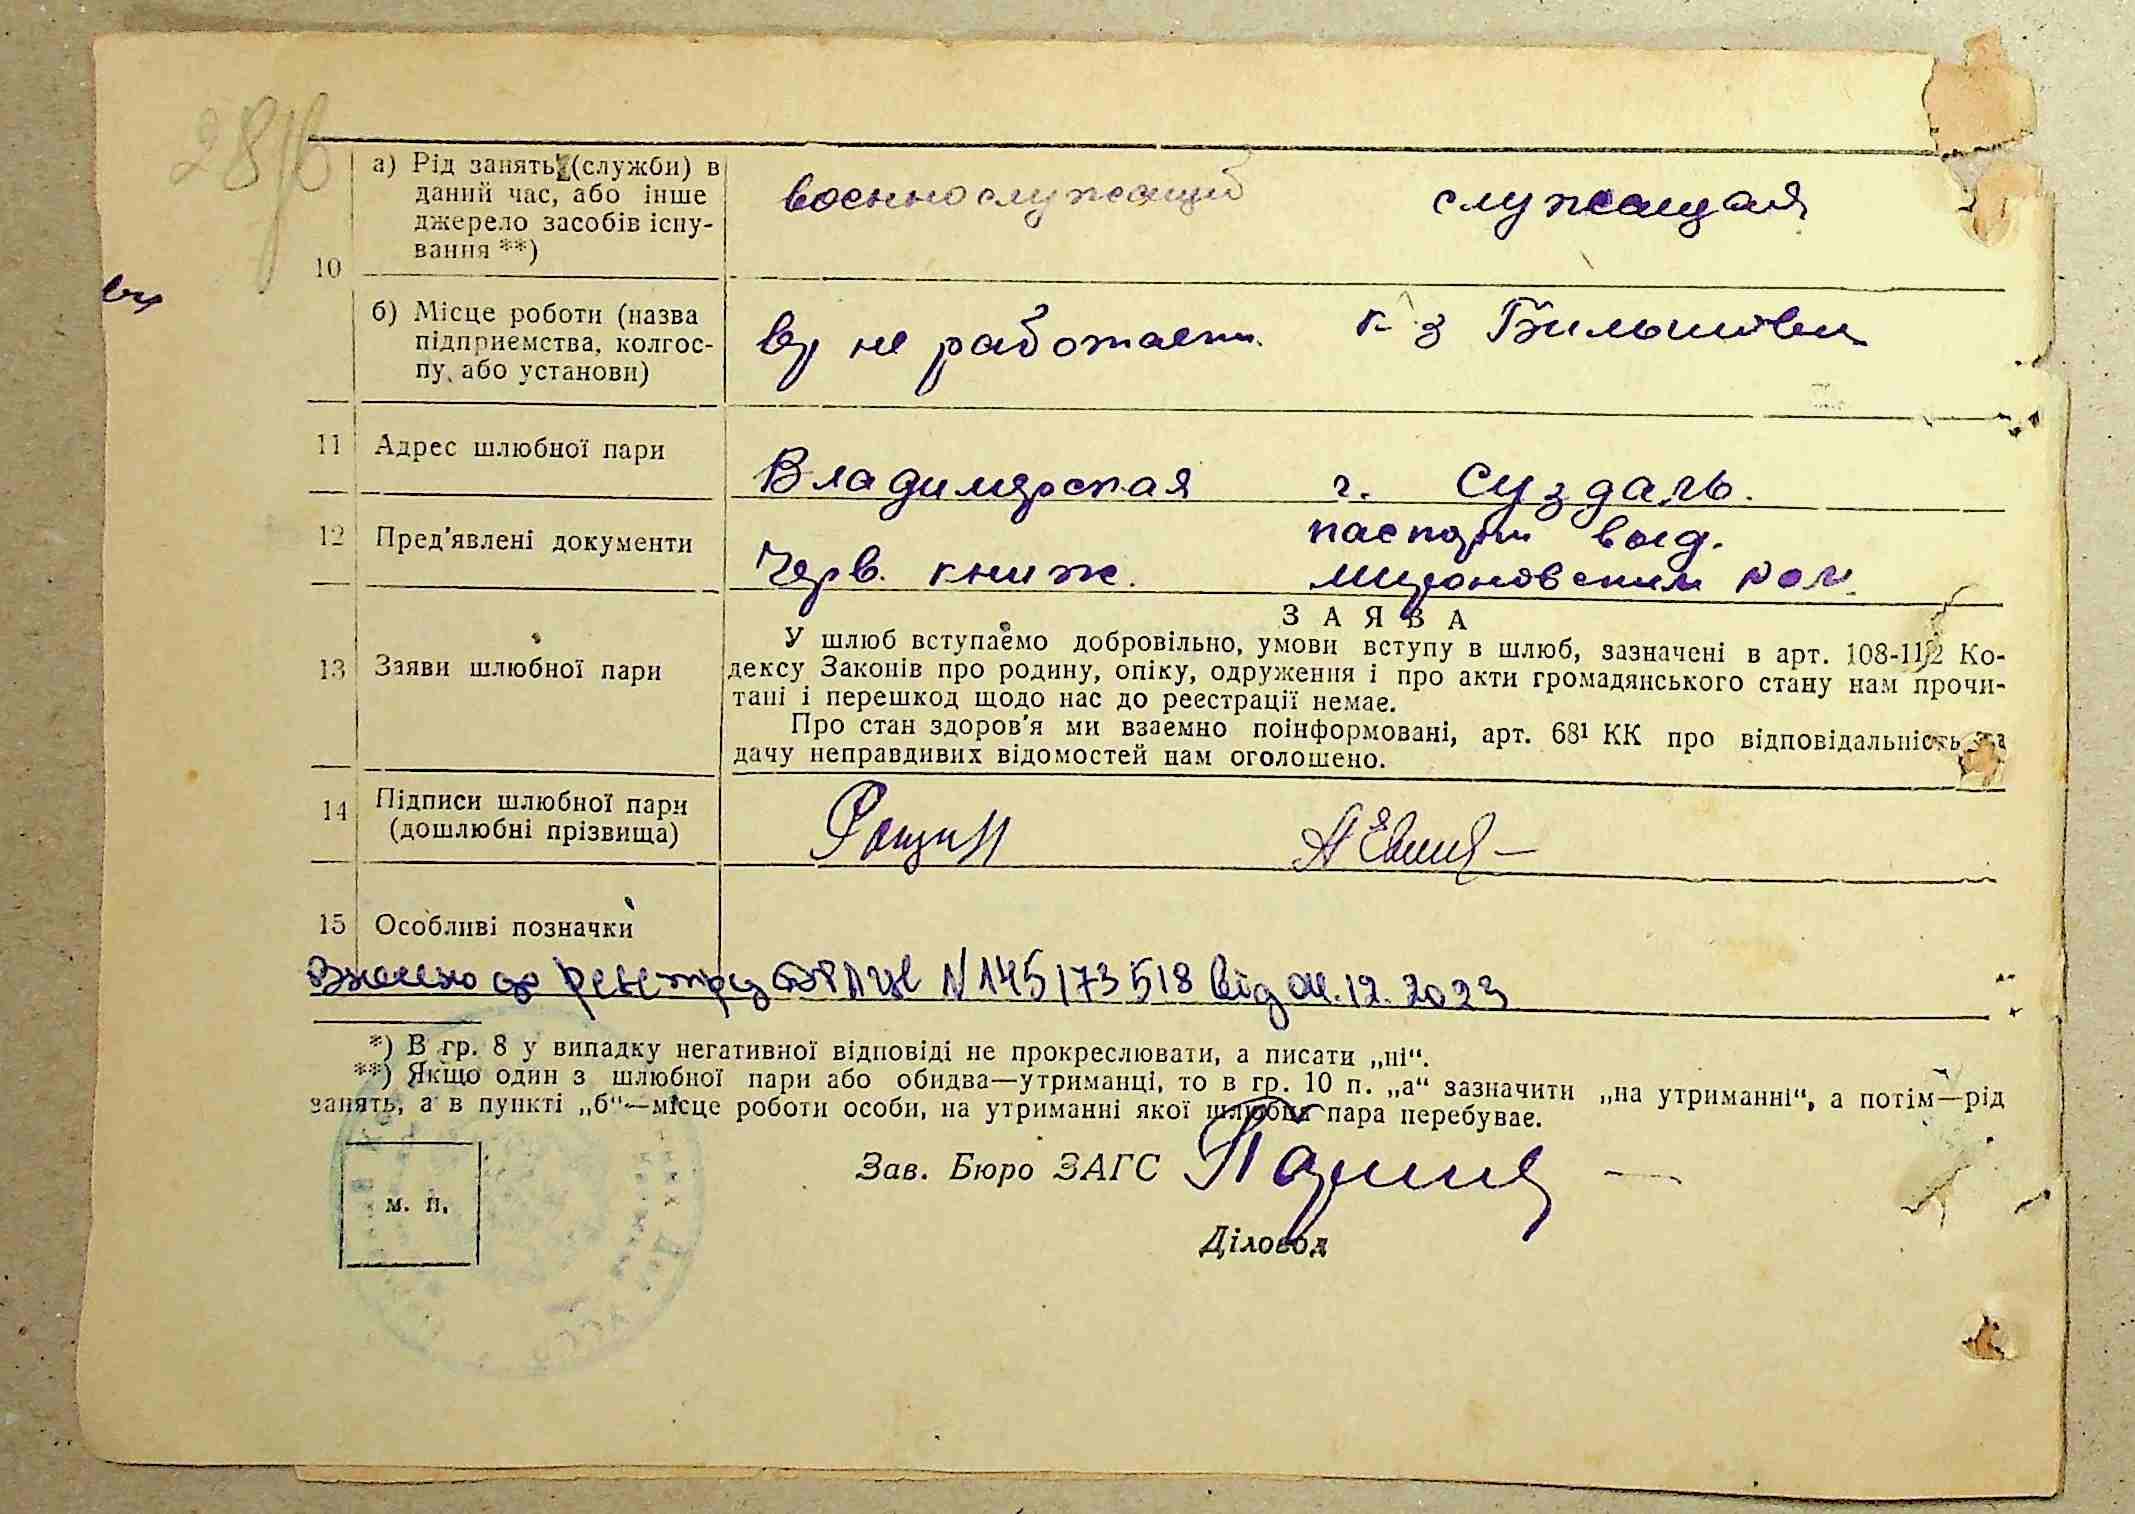 а) Рід занять (служби) в
даний час, або інше
джерело засобів існу-
вання **)
военнослужащий служащая
10
б) Місце роботи (назва
підприємства, колгос-
пу, або установи)
не работает. к-з
11 Адрес шлюбної пари
Владимирская г. Суздаль.
12 Пред'явлені документи
Черв. книж. паспорт выд.
мироновским ром.
З А Я В А
13 Заяви шлюбної пари
У шлюб вступаємо добровільно, умови вступу в шлюб, зазначені в арт. 108-112 Ко-
дексу Законів про родину, опіку, одруження і про акти громадянського стану нам прочи-
тані і перешкод щодо нас до реєстрації немає.
Про стан здоров'я ми взаємно поінформовані, арт. 68¹ КК про відповідальність за
дачу неправдивих відомостей нам оголошено.
14 Підписи шлюбної пари
(дошлюбні прізвища)
Рощин
15 Особливі позначки
Внесено до реєстру N 145173518 від 04.12.2023
*) В гр. 8 у випадку негативної відповіді не прокреслювати, а писати „ні“.
**) Якщо один з шлюбної пари або обидва—утриманці, то в гр. 10 п. „а“ зазначити „на утриманні“, а потім—рід
занять, а в пункті „б“—місце роботи особи, на утриманні якої шлюбна пара перебуває.
Зав. Бюро ЗАГС
м. п.
Діловод